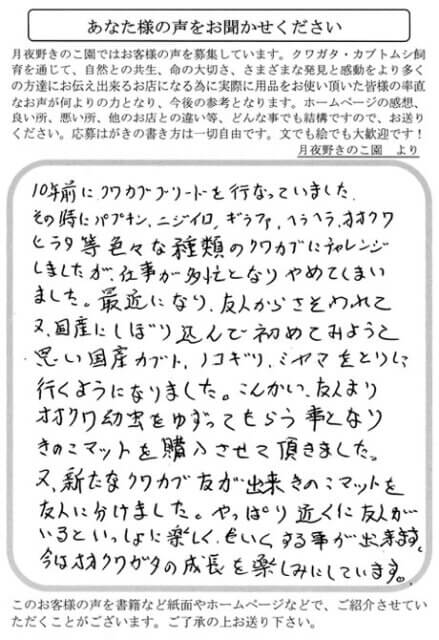 あなた様の声をお聞かせください
月夜野きのこ園ではお客様の声を募集しています。クワガタ・カブトムシ飼
育を通じて、自然との共生、命の大切さ、さまざまな発見と感動をより多く
の方達にお伝え出来るお店になる為に実際に用品をお使い頂いた皆様の率直
なお声が何よりの力となり、今後の参考となります。ホームページの感想、
良い所、悪い所、他のお店との違い等、どんな事でも結構ですので、お送り
ください。応募はがきの書き方は一切自由です。文でも絵でも大歓迎です！
月夜野きのこ園　より
10年前にクワカブブリードを行なっていました。
その時にパプキン、ニジイロ、ギラファ、ヘラヘラ、オオクワ
ヒラタ等色々な種類のクワカブにチャレンジ
しましたが、仕事が多忙となりやめてしまい
ました。最近になり、友人からさそわれて
又、国産にしぼり込んで初めてみようと
思い国産カブト、ノコギリ、ミヤマをとりに
行くようになりました。こんかい、友人より
オオクワ幼虫をゆずってもらう事となり
きのこマットを購入させて頂きました。
又、新たなクワカブ友が出来きのこマットを
友人に分けました。やっぱり近くに友人が
いるといっしょに楽しく、しいくする事が出来ます。
今はオオクワガタの成長を楽しみにしています。
このお客様の声を書籍など紙面やホームページなどで、ご紹介させてい
ただくことがございます。ご了承の上お送り下さい。